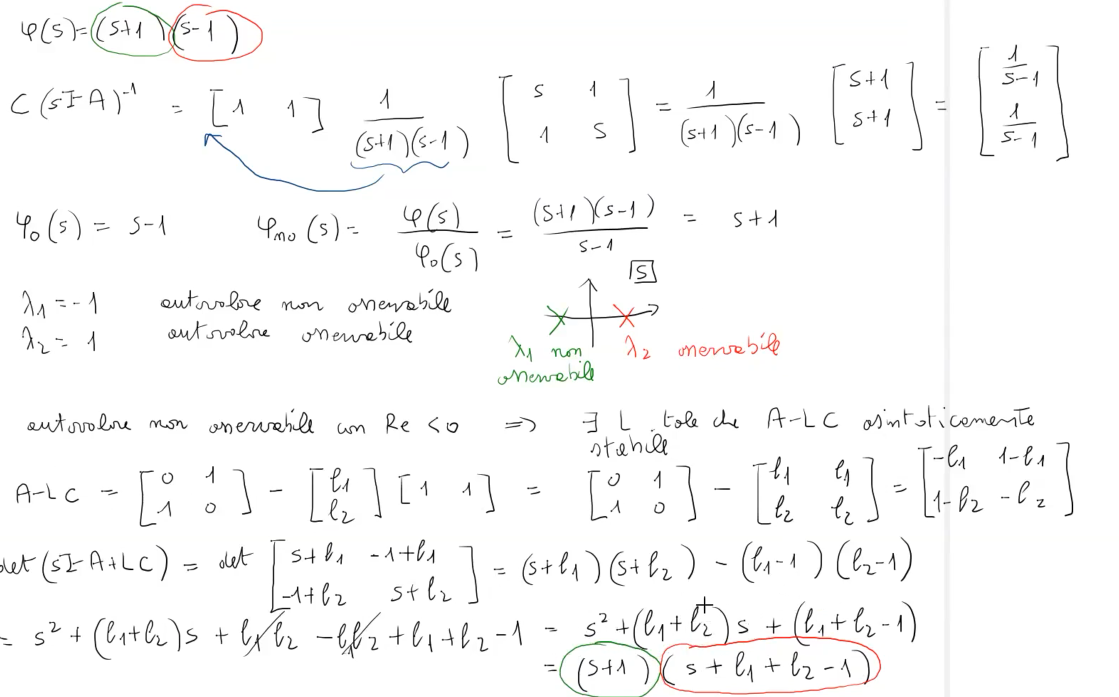 φ(s)=(s+1)(s-1)
C(sI-A)⁻¹ = [1 1] 1/((s+1)(s-1)) [s 1; 1 s] = 1/((s+1)(s-1)) [s+1; s+1] = [1/(s-1); 1/(s-1)]
φo(s) = s-1 φno(s) = φ(s)/φo(s) = (s+1)(s-1)/(s-1) = s+1
s
λ1 = -1 autovalore non osservabile
λ2 = 1 autovalore osservabile
λ1 non osservabile
λ2 osservabile
autovalore non osservabile con Re<0 ⇒ ∃ L tale che A-LC asintoticamente stabile
A-LC = [0 1; 1 0] - [l1; l2] [1 1] = [0 1; 1 0] - [l1 l1; l2 l2] = [-l1 1-l1; 1-l2 -l2]
det(sI-A+LC) = det [s+l1 -1+l1; -1+l2 s+l2] = (s+l1)(s+l2) - (l1-1)(l2-1)
= s² + (l1+l2)s + l1l2 - l1l2 + l1 + l2 - 1 = s² + (l1+l2)s + (l1+l2-1)
= (s+1)(s+l1+l2-1)